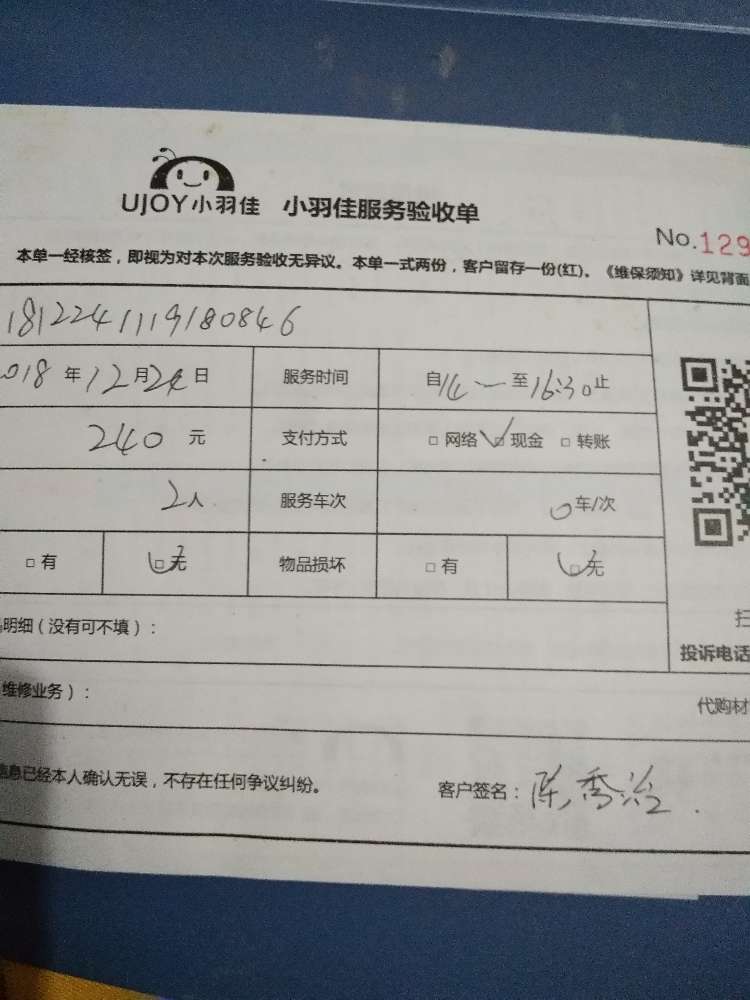 UJOY小羽佳 小羽佳服务验收单
No.129
本单一经核签，即视为对本次服务验收无异议。本单一式两份，客户留存一份(红)。《维保须知》详见背面
1812241119180846
2018 年 12 月 24 日 服务时间 自14一至16:30止
240 元 支付方式 □ 网络 □ 现金 □ 转账
2人 服务车次 0车/次
□ 有 □ 无 物品损坏 □ 有 □ 无
明细（没有可不填）：
扫
投诉电话
维修业务）：
代购材
信息已经本人确认无误，不存在任何争议纠纷。 客户签名：陈乔治